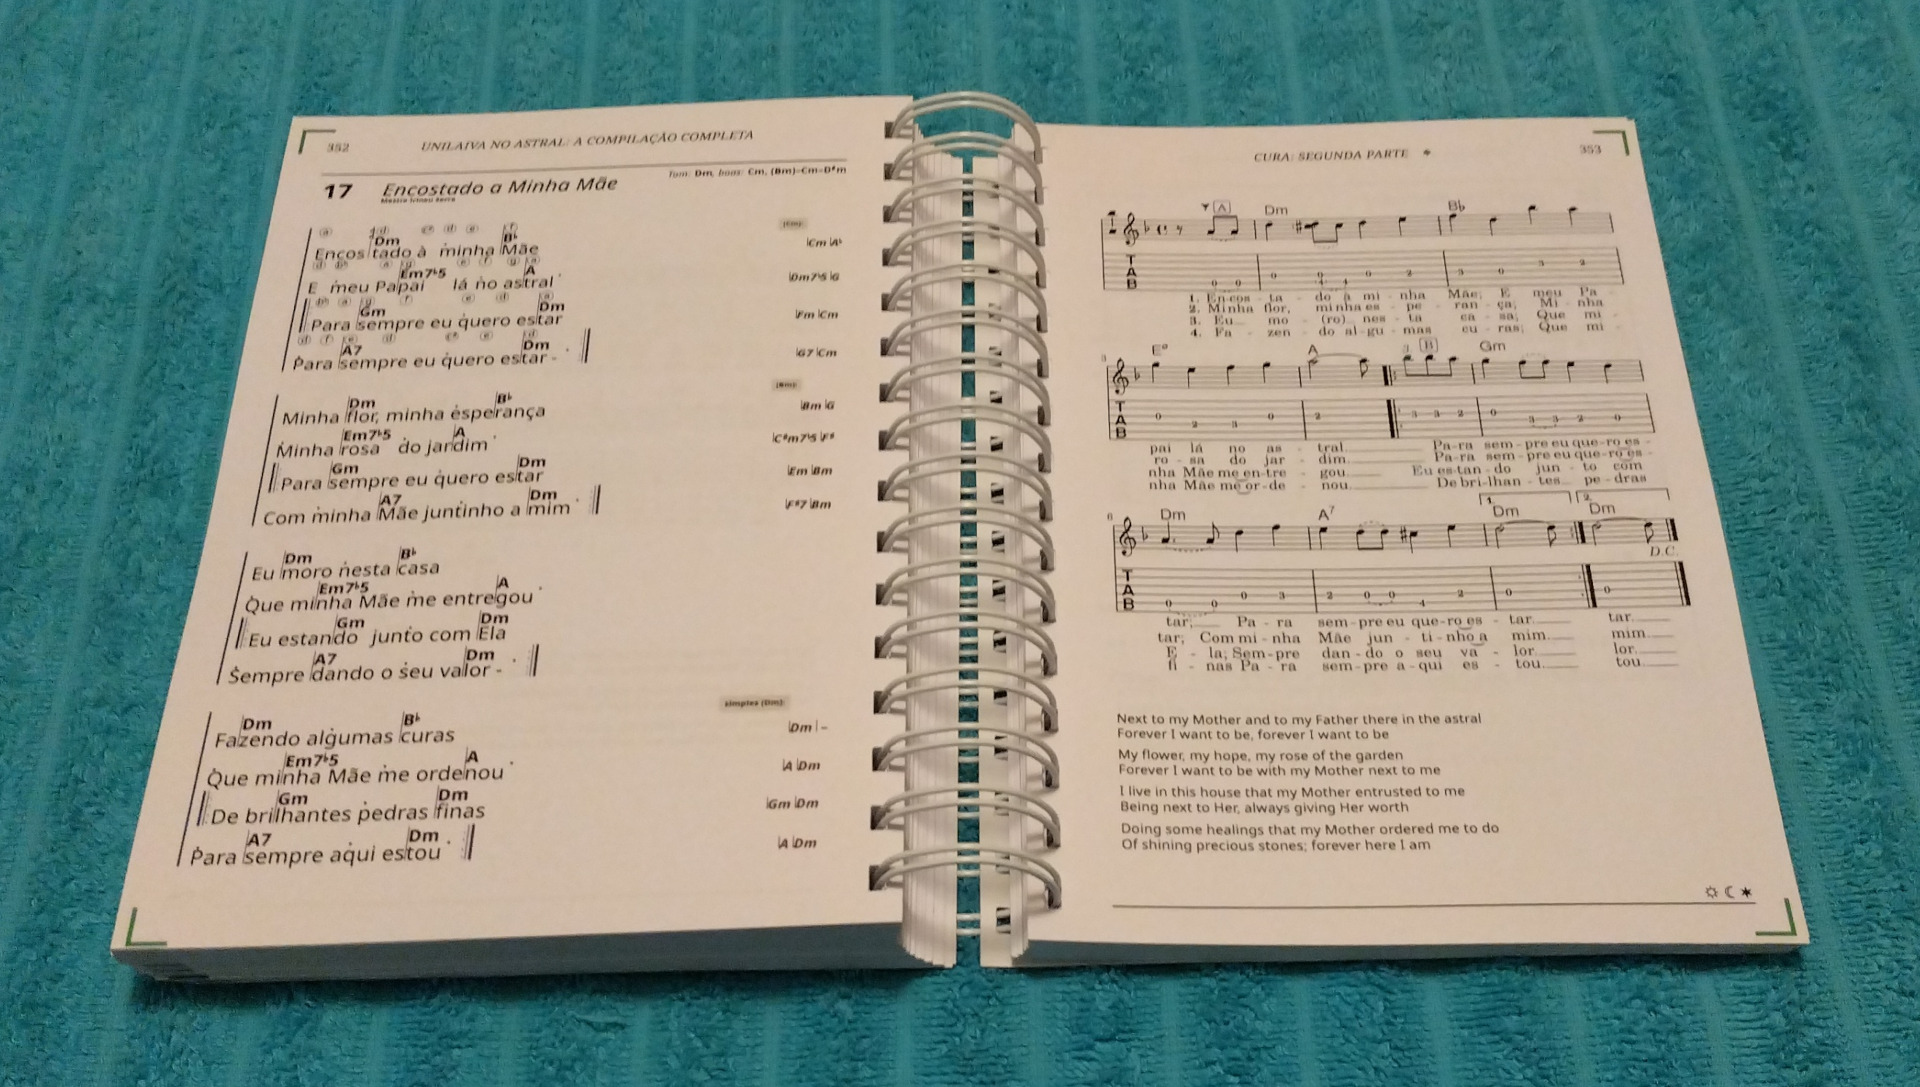 352
UNILAIVA NO ASTRAL: A COMPILAÇÃO COMPLETA
17 Encostado a Minha Mãe
Tom: Dm, boas: Cm, (Bm)–Cm–D#m
Mestre Irineu Serra
(Cm)
Dm B♭
Encostado à minha Mãe
Cm A♭
Em7♭5 A
E meu Papai lá no astral
Dm7♭5 G
Gm Dm
Para sempre eu quero estar
Fm Cm
A7 Dm
Para sempre eu quero estar -
G7 Cm
(Bm)
Dm B♭
Minha flor, minha esperança
Bm G
Em7♭5 A
Minha rosa do jardim
C#m7♭5 F#
Gm Dm
Para sempre eu quero estar
Em Bm
A7 Dm
Com minha Mãe juntinho a mim
F#7 Bm
Dm B♭
Eu moro nesta casa
Em7♭5 A
Que minha Mãe me entregou
Gm Dm
Eu estando junto com Ela
A7 Dm
Sempre dando o seu valor -
simples (Dm)
Dm B♭
Fazendo algumas curas
Dm –
Em7♭5 A
Que minha Mãe me ordenou
A Dm
Gm Dm
De brilhantes pedras finas
Gm Dm
A7 Dm
Para sempre aqui estou
A Dm
CURA: SEGUNDA PARTE
353
A Dm B♭
T
A
B
1. En-cos - ta - do à mi - nha Mãe; E meu Pa -
2. Minha flor, minha es - pe - ran - ça; Mi - nha
3. Eu mo - (ro) nes - ta ca - sa; Que mi -
4. Fa - zen - do al-gu - mas cu - ras; Que mi -
Eø A B Gm
T
A
B
pai lá no as - tral. Pa-ra sem-pre eu que-ro es -
ro - sa do jar - dim. Pa-ra sem-pre eu que-ro es -
nha Mãe me en-tre - gou. Eu es-tan-do jun - to com
nha Mãe me or-de - nou. De bri-lhan-tes pe-dras
1. 2.
Dm A7 Dm Dm
D.C.
T
A
B
tar; Pa - ra sem-pre eu que-ro es - tar. tar.
tar; Com mi - nha Mãe jun - ti-nho a mim. mim.
E - la; Sem-pre dan - do o seu va - lor. lor.
fi - nas Pa - ra sem-pre a-qui es - tou. tou.
Next to my Mother and to my Father there in the astral
Forever I want to be, forever I want to be
My flower, my hope, my rose of the garden
Forever I want to be with my Mother next to me
I live in this house that my Mother entrusted to me
Being next to Her, always giving Her worth
Doing some healings that my Mother ordered me to do
Of shining precious stones; forever here I am